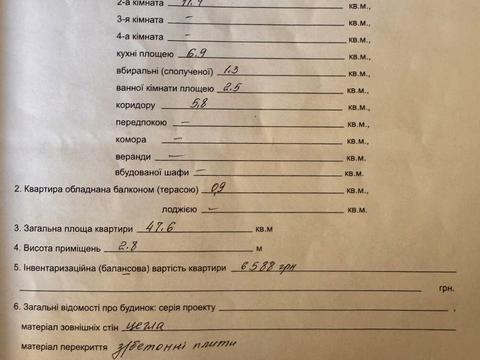 2-а кімната кв.м.,
3-я кімната – кв.м.,
4-а кімната – кв.м.,
кухні площею 6.9 кв.м.,
вбиральні (сполученої) 1.3 кв.м.,
ванної кімнати площею 2.5 кв.м.,
коридору 5,8 кв.м.,
передпокою – кв.м.,
комора – кв.м.,
веранди – кв.м.,
вбудованої шафи – кв.м.
2. Квартира обладнана балконом (терасою) 0,9 кв.м.,
лоджією – кв.м.
3. Загальна площа квартири 47.6 кв.м
4. Висота приміщень 2.8 м
5. Інвентаризаційна (балансова) вартість квартири 6588 грн
грн.
6. Загальні відомості про будинок: серія проекту
матеріал зовнішніх стін цегла
матеріал перекриття з/бетонні плити